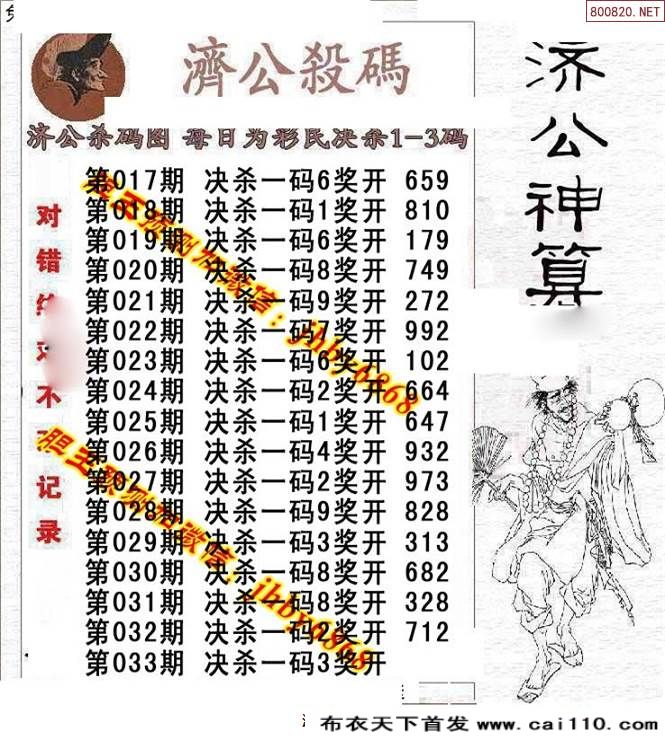 800820.NET
濟公殺碼
济公杀码图 每日为彩民决杀1-3码
第017期 决杀一码6奖开 659
第018期 决杀一码1奖开 810
第019期 决杀一码6奖开 179
第020期 决杀一码8奖开 749
第021期 决杀一码9奖开 272
第022期 决杀一码7奖开 992
第023期 决杀一码6奖开 102
第024期 决杀一码2奖开 664
第025期 决杀一码1奖开 647
第026期 决杀一码4奖开 932
第027期 决杀一码2奖开 973
第028期 决杀一码9奖开 828
第029期 决杀一码3奖开 313
第030期 决杀一码8奖开 682
第031期 决杀一码8奖开 328
第032期 决杀一码2奖开 712
第033期 决杀一码3奖开
对错
对不
记录
济公神算
胆王预测加微信：jhby6868
胆王预测加微信：jhby6868
布衣天下首发 www.cai110.com